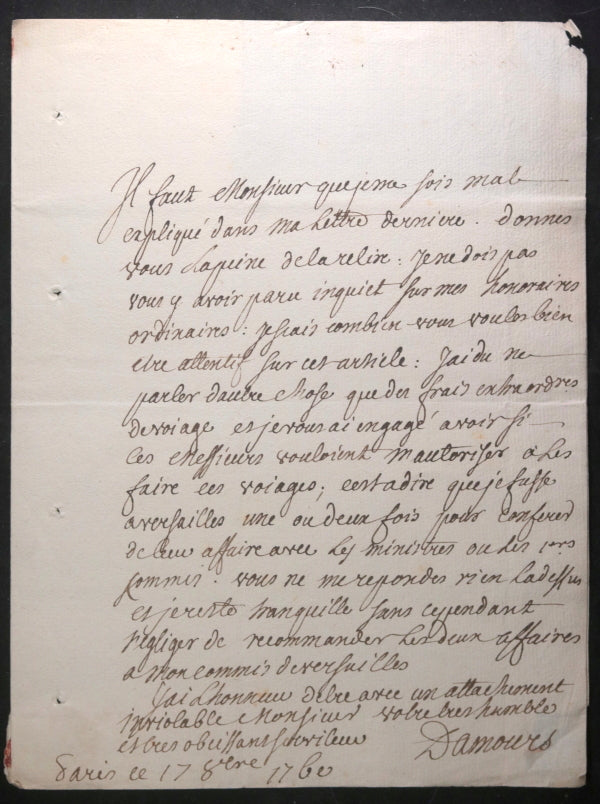 Il faut Monsieur que je me sois mal
expliqué dans ma lettre derniere. donnes
vous la peine de la relire: Je ne dois pas
vous y avoir paru inquiet sur mes honoraires
ordinaires: je scais combien vous voules bien
etre attentif sur cet article: Jai du ne
parler dautre chose que des frais extraordres
de voiage et je vous ai engagé a voir si
ces Messieurs vouloient m'autoriser a les
faire ces voiages; cestadire que je fusse
a versailles une ou deux fois pour conferer
de leur affaire avec les ministres ou les 1ers
commis. vous ne me repondes rien la dessus
et je reste tranquille sans cependant
negliger de recommander les deux affaires
a mon commis de versailles
Jai lhonneur detre avec un attachement
inviolable Monsieur votre tres humble
et tres obeissant serviteur Damours
Paris ce 17 8bre 1760